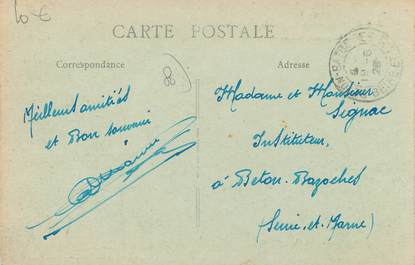 10 €
CARTE POSTALE
Correspondance
Adresse
Meilleurs amitiés
et Bon souvenir
Madame et Monsieur
Signac
Instituteur,
à Beton-Bazoches
(Seine-et-Marne)